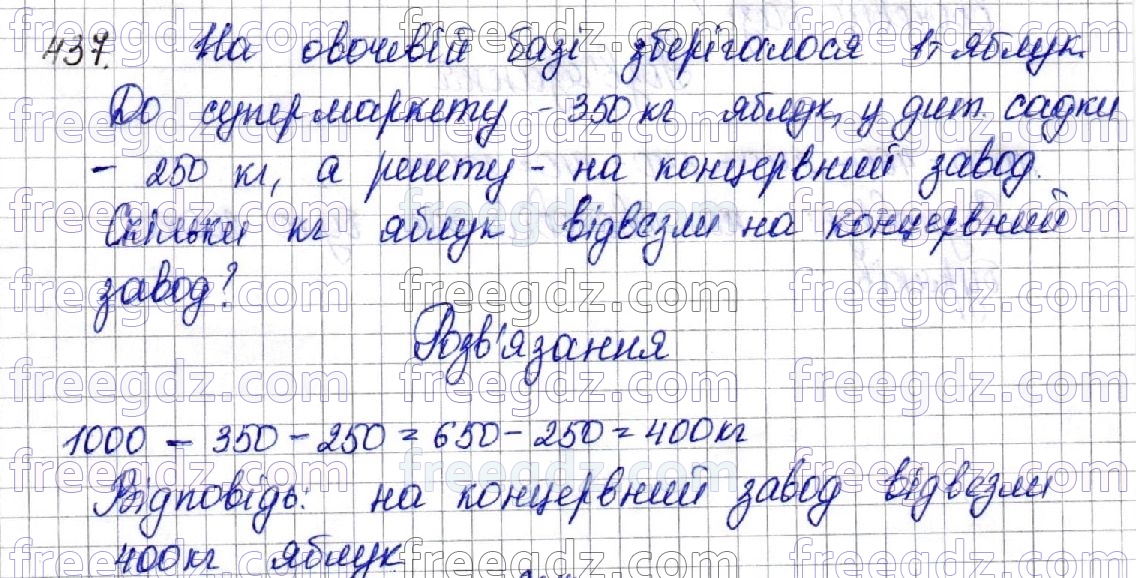 437. На овочевій базі зберігалося 1т яблук.
До супермаркету - 350 кг яблук, у дит. садки
- 250 кг, а решту - на концервний завод.
Скільки кг яблук відвезли на концервний
завод?
Розв'язання
1000 - 350 - 250 = 650 - 250 = 400 кг
Відповідь: на концервний завод відвезли
400 кг яблук
freegdz.com